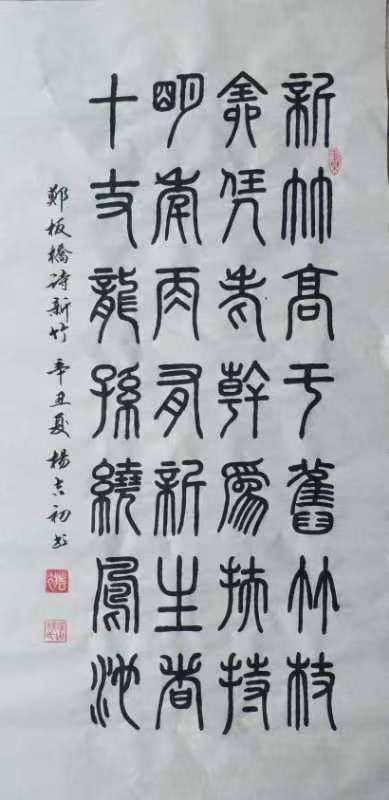 新竹高于舊竹枝
全凭老幹爲扶持
明年再有新生者
十丈龍孫繞鳳池
鄭板橋诗新竹 辛丑夏 楊吉初书